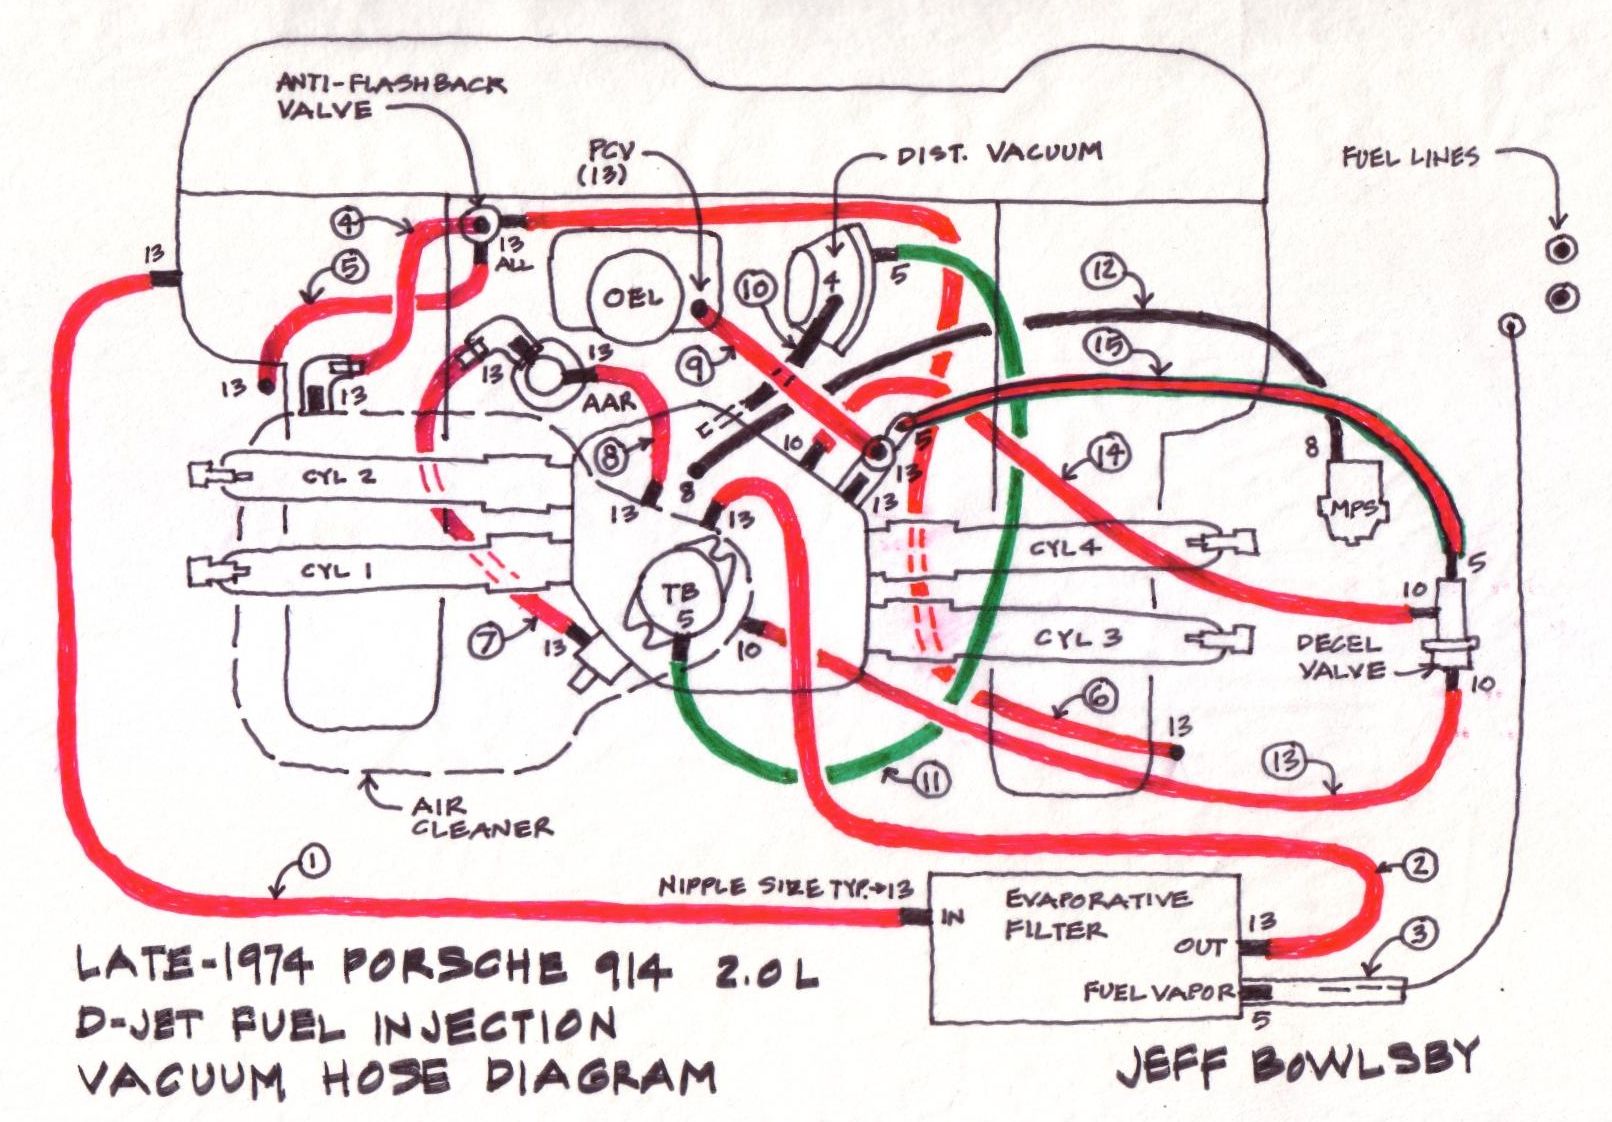 ANTI-FLASHBACK
VALVE
PCV
(13)
DIST. VACUUM
FUEL LINES
4
13
ALL
13
5
OEL
10
4
5
12
15
9
13
13
13
13
AAR
8
10
5
13
13
14
8
MPS
CYL 2
8
13
13
CYL 1
TB
5
CYL 4
10
5
7
13
10
CYL 3
DECEL
VALVE
10
6
13
13
11
AIR
CLEANER
1
2
NIPPLE SIZE TYP.→13
IN
EVAPORATIVE
FILTER
13
OUT
3
FUEL VAPOR
5
LATE-1974 PORSCHE 914 2.0L
D-JET FUEL INJECTION
VACUUM HOSE DIAGRAM
JEFF BOWLSBY